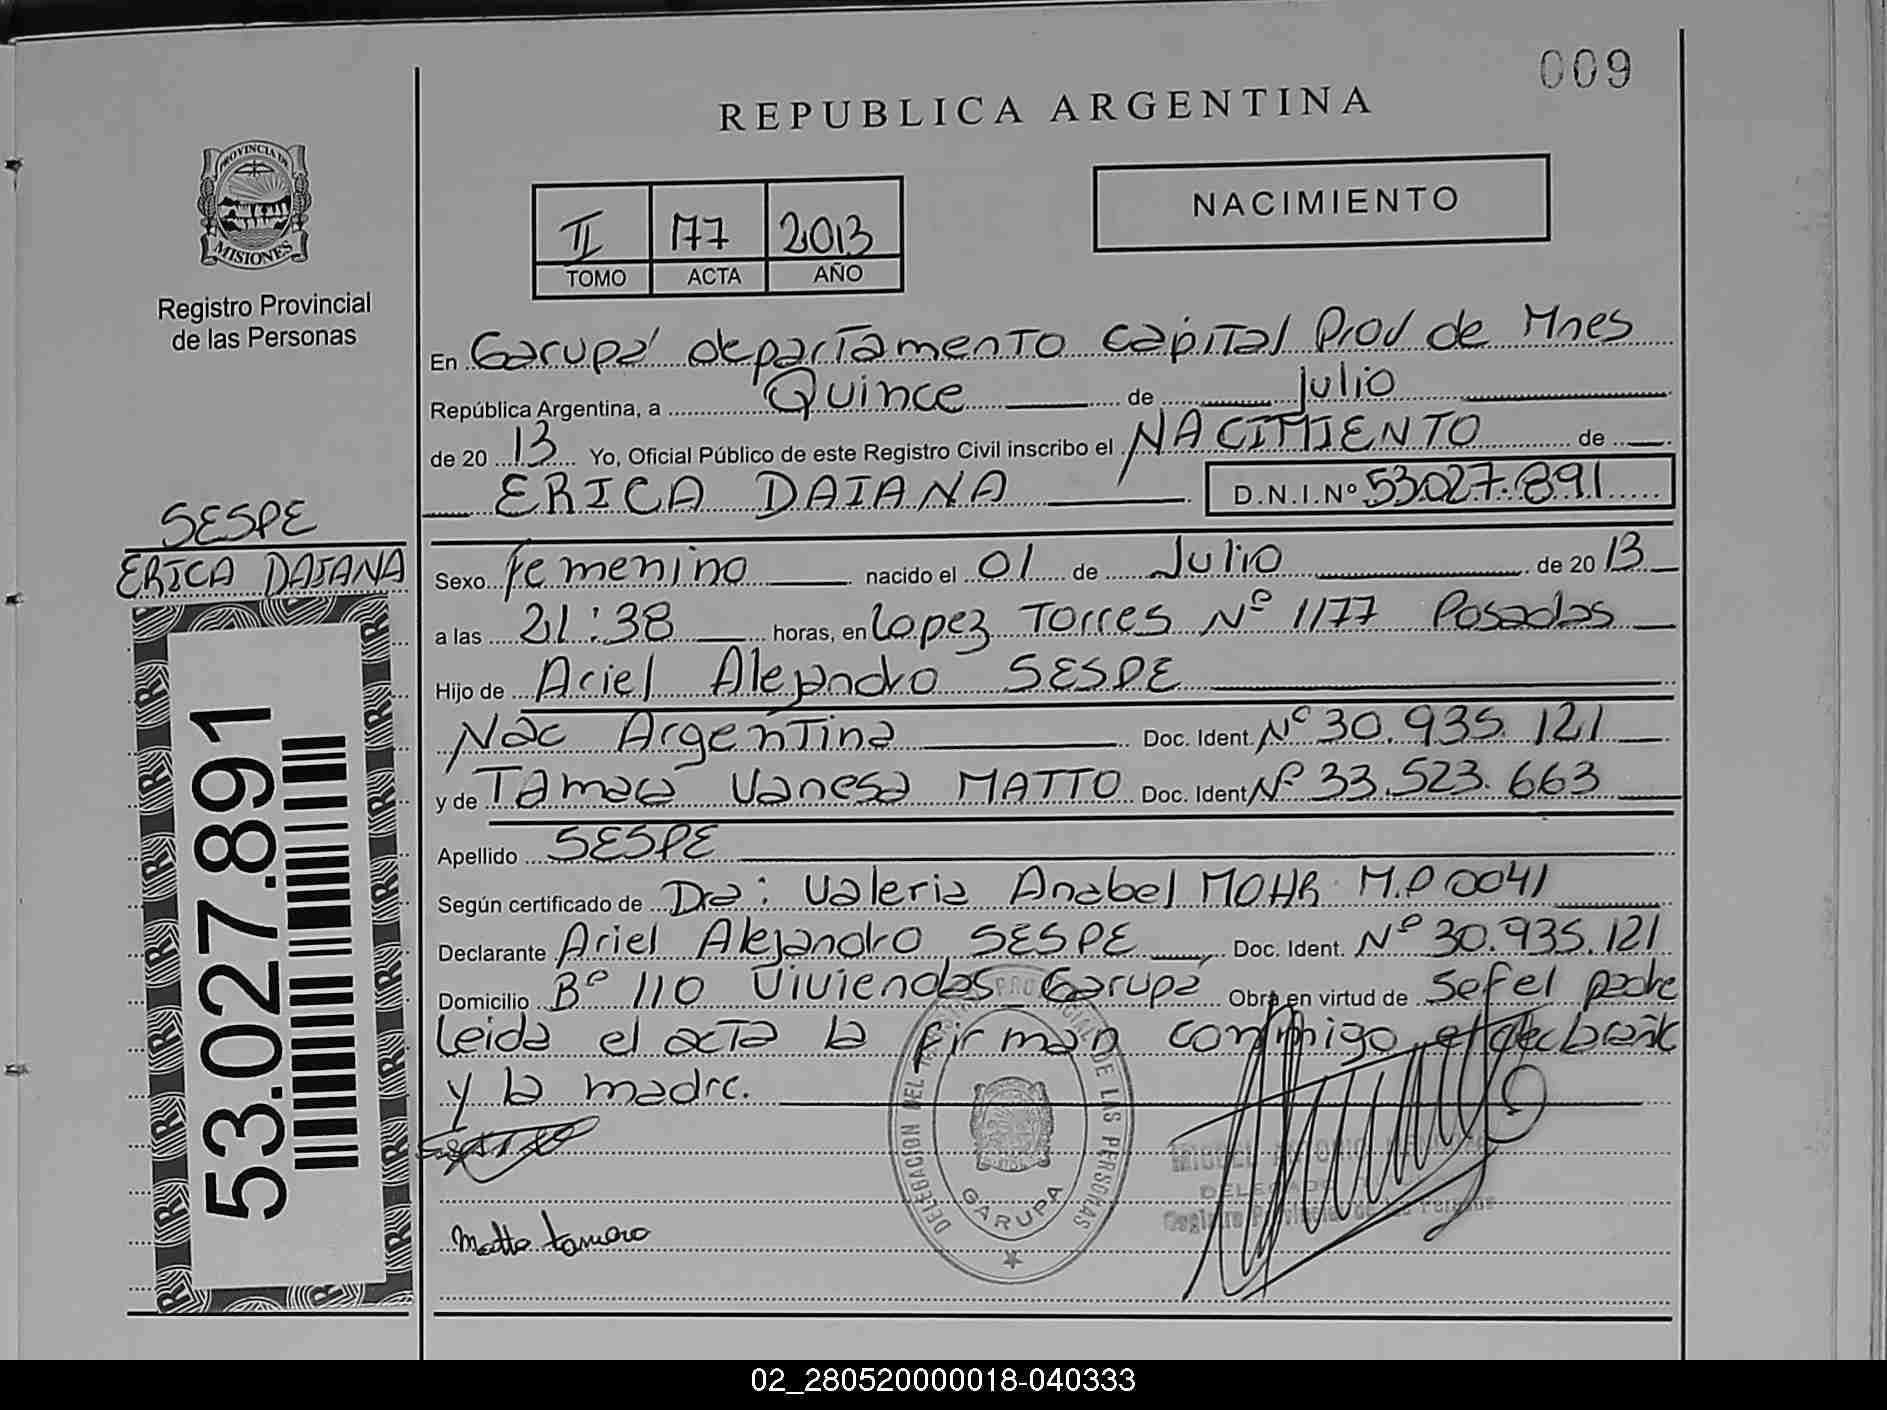 009
REPUBLICA ARGENTINA
PROVINCIA DE
MISIONES
Registro Provincial
de las Personas
II 177 2013
TOMO ACTA AÑO
NACIMIENTO
En Garupá departamento Capital Prov de Mnes
República Argentina, a Quince de Julio
de 20 13 Yo, Oficial Público de este Registro Civil inscribo el NACIMIENTO de
ERICA DAIANA D.N.I.Nº 53.027.891
SESPE
ERICA DAIANA
53.027.891
Sexo femenino nacido el 01 de Julio de 20 13
a las 21:38 horas, en Lopez Torres Nº 1177 Posadas
Hijo de Ariel Alejandro SESPE
Nac Argentina Doc. Ident. Nº 30.935.121
y de Vanesa MATTO Doc. Ident Nº 33.523.663
Apellido SESPE
Según certificado de Dra: Valeria Anabel MOHR M.P 0041
Declarante Ariel Alejandro SESPE Doc. Ident. Nº 30.935.121
Domicilio Bº 110 Viviendas Garupá Obra en virtud de Ser el padre
Leida el acta la firman conmigo el
y la madre.
Matto tamara
DELEGACION DEL REGISTRO PROVINCIAL DE LAS PERSONAS
GARUPA
MIGUEL ANTONIO
DELEGADO
Registro Provincial de las Personas
02_280520000018-040333